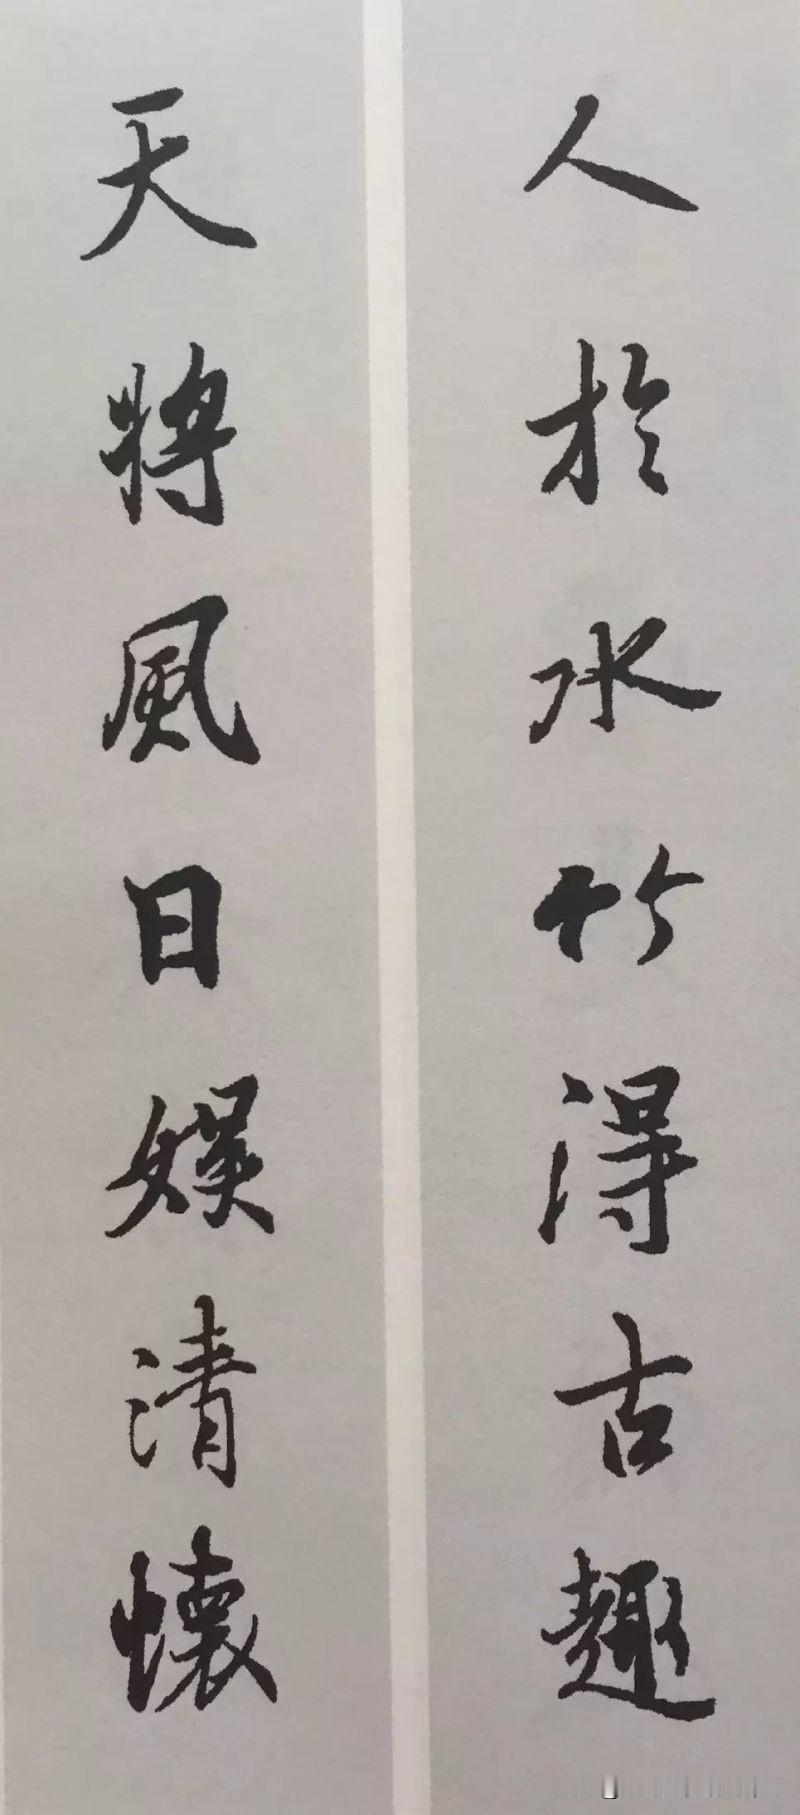 人於水竹得古趣
天將風日娛清懷